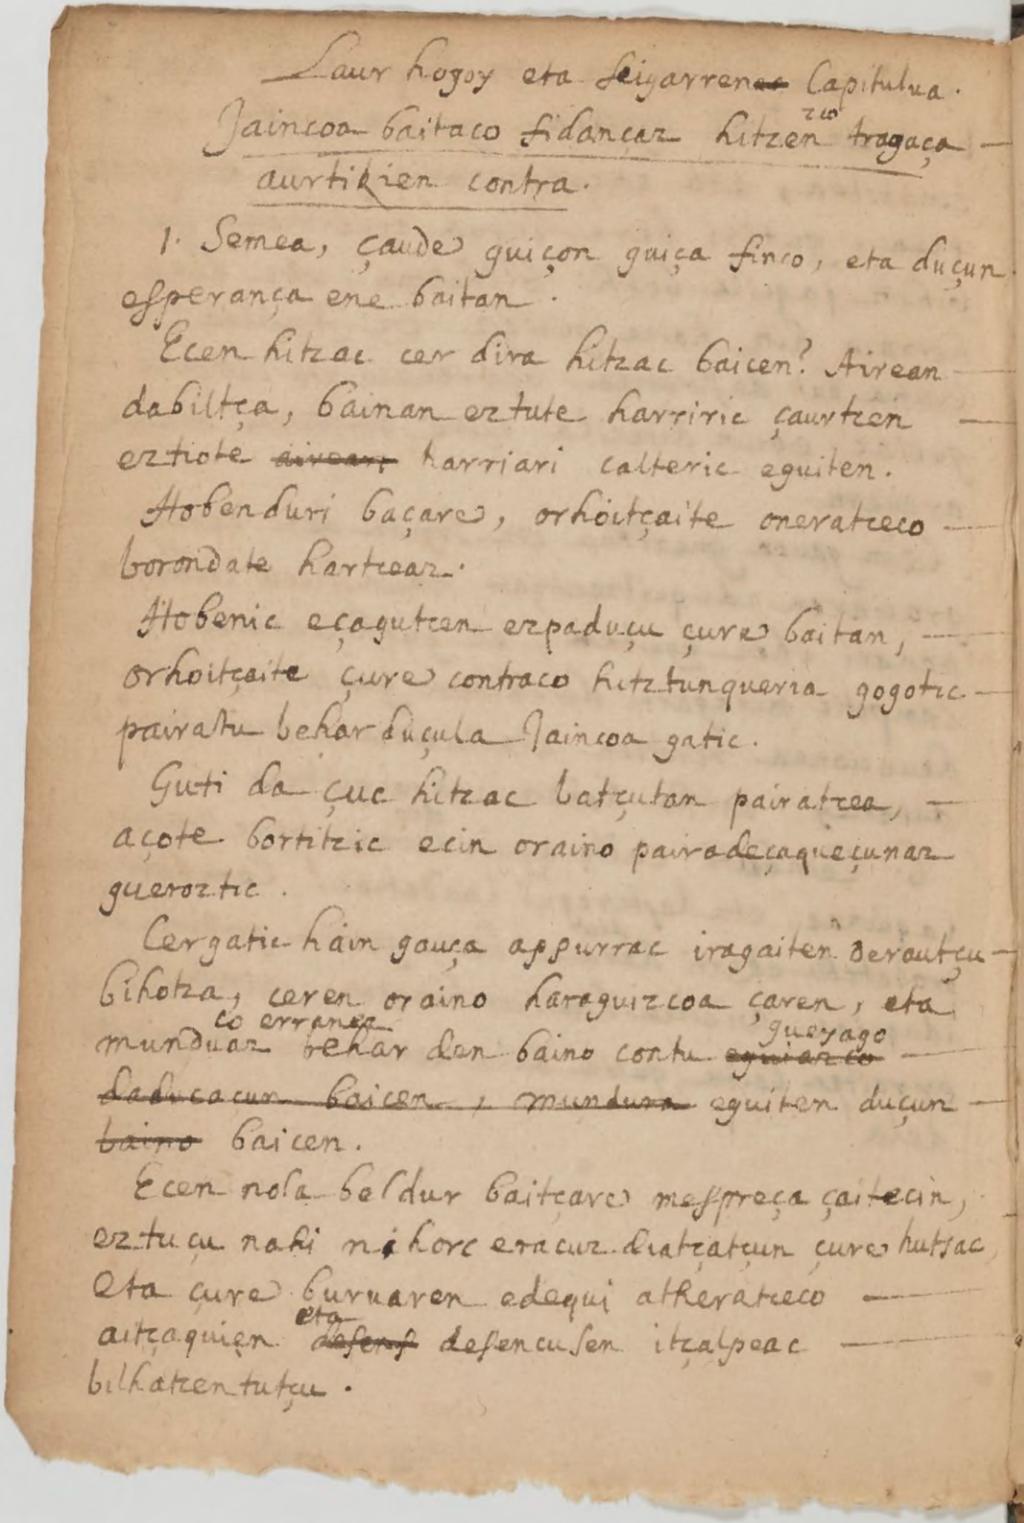 Laur hogoy eta seigarren Capitulua.
Jaincoa baitaco fidançaz hitzen zco tragaça
aurtikien contra.
1. Semea, çaude guiçon guiça finco, eta duçun
esperança ene baitan.
Ecen hitzac cer dira hitzac baicen? Airean
dabiltça, bainan eztute harriric çaurtzen
eztiote airean harriari calteric eguiten.
Hobenduri baçare, orhoitçaite oneratceco
borondate hartceaz.
Hobenic eçagutcen ezpaduçu çure baitan,
orhoitçaite çure contraco hitztunqueria gogotic
pairatu behar duçula Jaincoa gatic.
Guti da çuc hitzac batçutan pairatcea,
açote bortitzic ecin oraino pairadeçaqueçunaz
gueroztic.
Cergatic hain gauça appurrac iragaiten derautçu
bihotza, ceren oraino haraguizcoa çaren, eta
co erranez gueyago
munduaz behar den baino contu eguiazco
daducacun baicen, mundura eguiten duçun
baino baicen.
Ecen nola beldur baitçare mespreça çaitecin,
eztuçu nahi nihorc eracuz diatçatçun çure hutsac,
eta çure buruaren edequi atheratceco
eta
aitçaquien desens desencusen itçalpeac
bilhatcen tutçu.